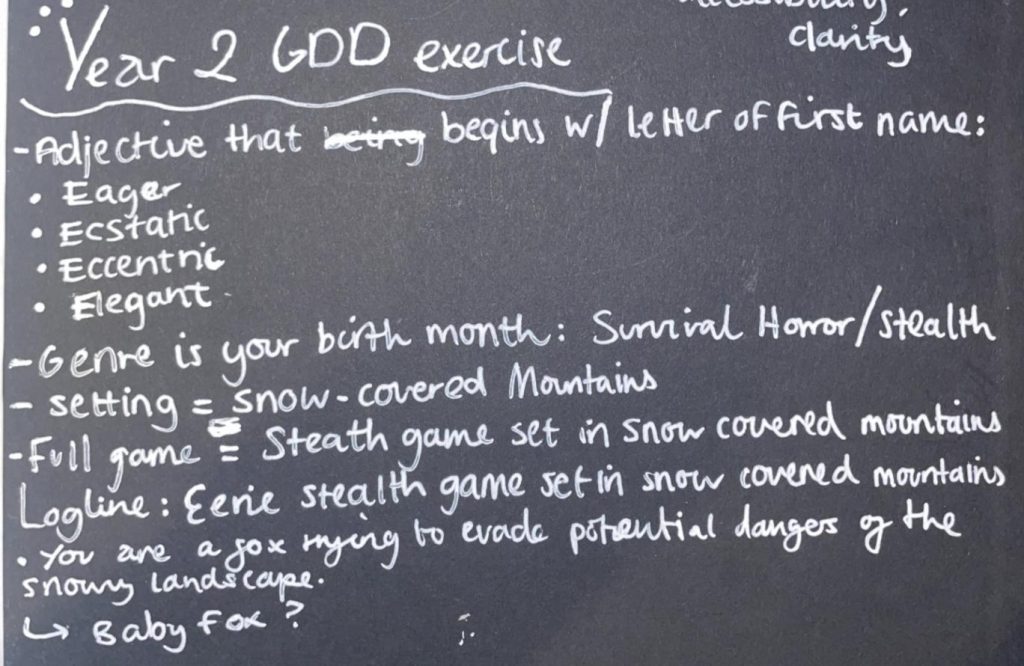 clarity
Year 2 GDD exercise
- Adjective that being begins w/ letter of first name:
• Eager
• Ecstatic
• Eccentric
• Elegant
- Genre is your birth month: Survival Horror/stealth
- setting = snow-covered Mountains
- Full game = Steath game set in snow covered mountains
Logline: Eerie stealth game set in snow covered mountains
• You are a fox trying to evade potential dangers of the
snowy landscape.
↳ Baby fox?